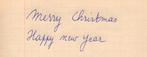 Merry Christmas
Happy new year